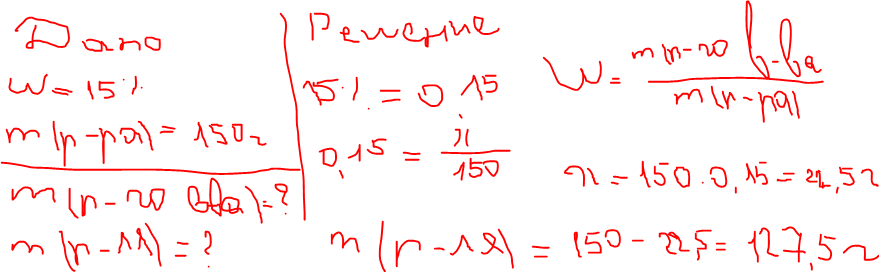 Дано
W = 15%
m(р-ра) = 150г
m(р-го в-ва) = ?
m(р-ля) = ?
Решение
15% = 0,15
0,15 = x / 150
W = m(р-го в-ва) / m(р-ра)
x = 150 · 0,15 = 22,5г
m(р-ля) = 150 - 22,5 = 127,5г